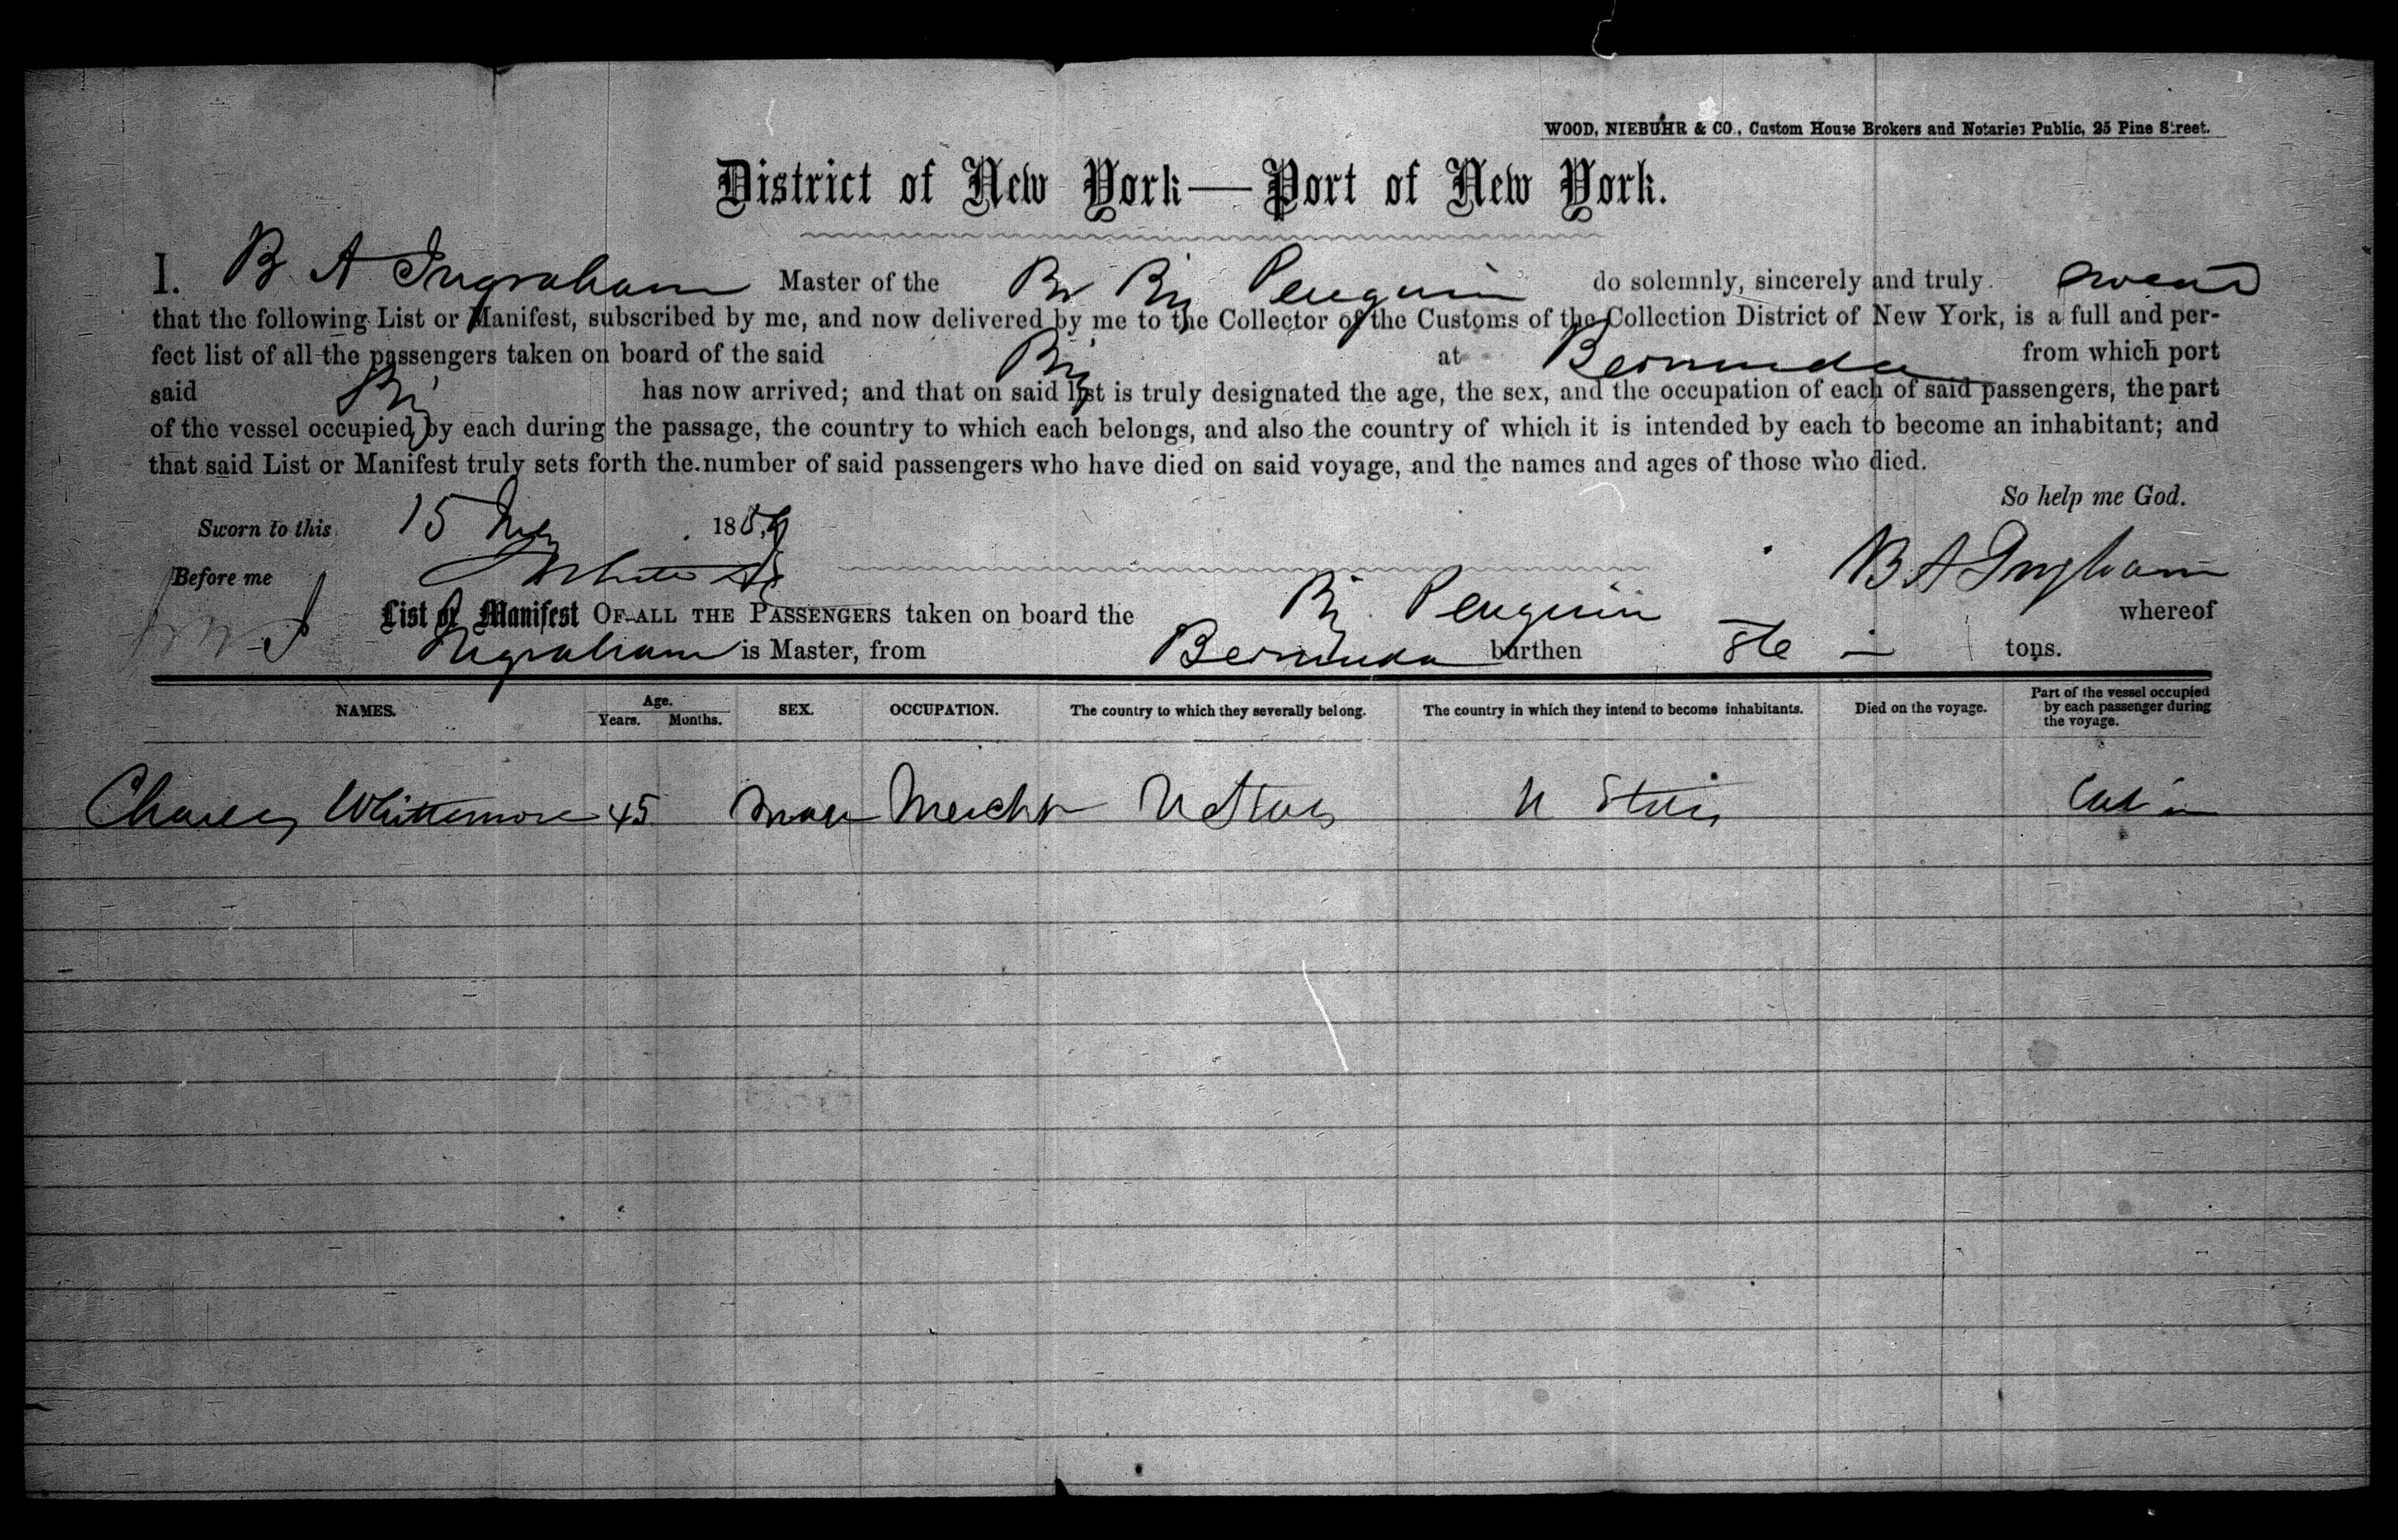 WOOD, NIEBUHR & CO., Custom House Brokers and Notaries Public, 25 Pine Street.
District of New York—Port of New York.
I. B A Ingraham Master of the Br Big Penguin do solemnly, sincerely and truly swear
that the following List or Manifest, subscribed by me, and now delivered by me to the Collector of the Customs of the Collection District of New York, is a full and per-
fect list of all the passengers taken on board of the said Big at Bermuda from which port
said Big has now arrived; and that on said list is truly designated the age, the sex, and the occupation of each of said passengers, the part
of the vessel occupied by each during the passage, the country to which each belongs, and also the country of which it is intended by each to become an inhabitant; and
that said List or Manifest truly sets forth the number of said passengers who have died on said voyage, and the names and ages of those who died.
So help me God.
Sworn to this 15 1859
Before me B A Ingham
List or Manifest OF ALL THE PASSENGERS taken on board the Big Penguin whereof
Ingraham is Master, from Bermuda burthen tons.
NAMES. Age. Years. Months. SEX. OCCUPATION. The country to which they severally belong. The country in which they intend to become inhabitants. Died on the voyage. Part of the vessel occupied by each passenger during the voyage.
Charles Whittemore 45 Male Mercht U States U States Cabin